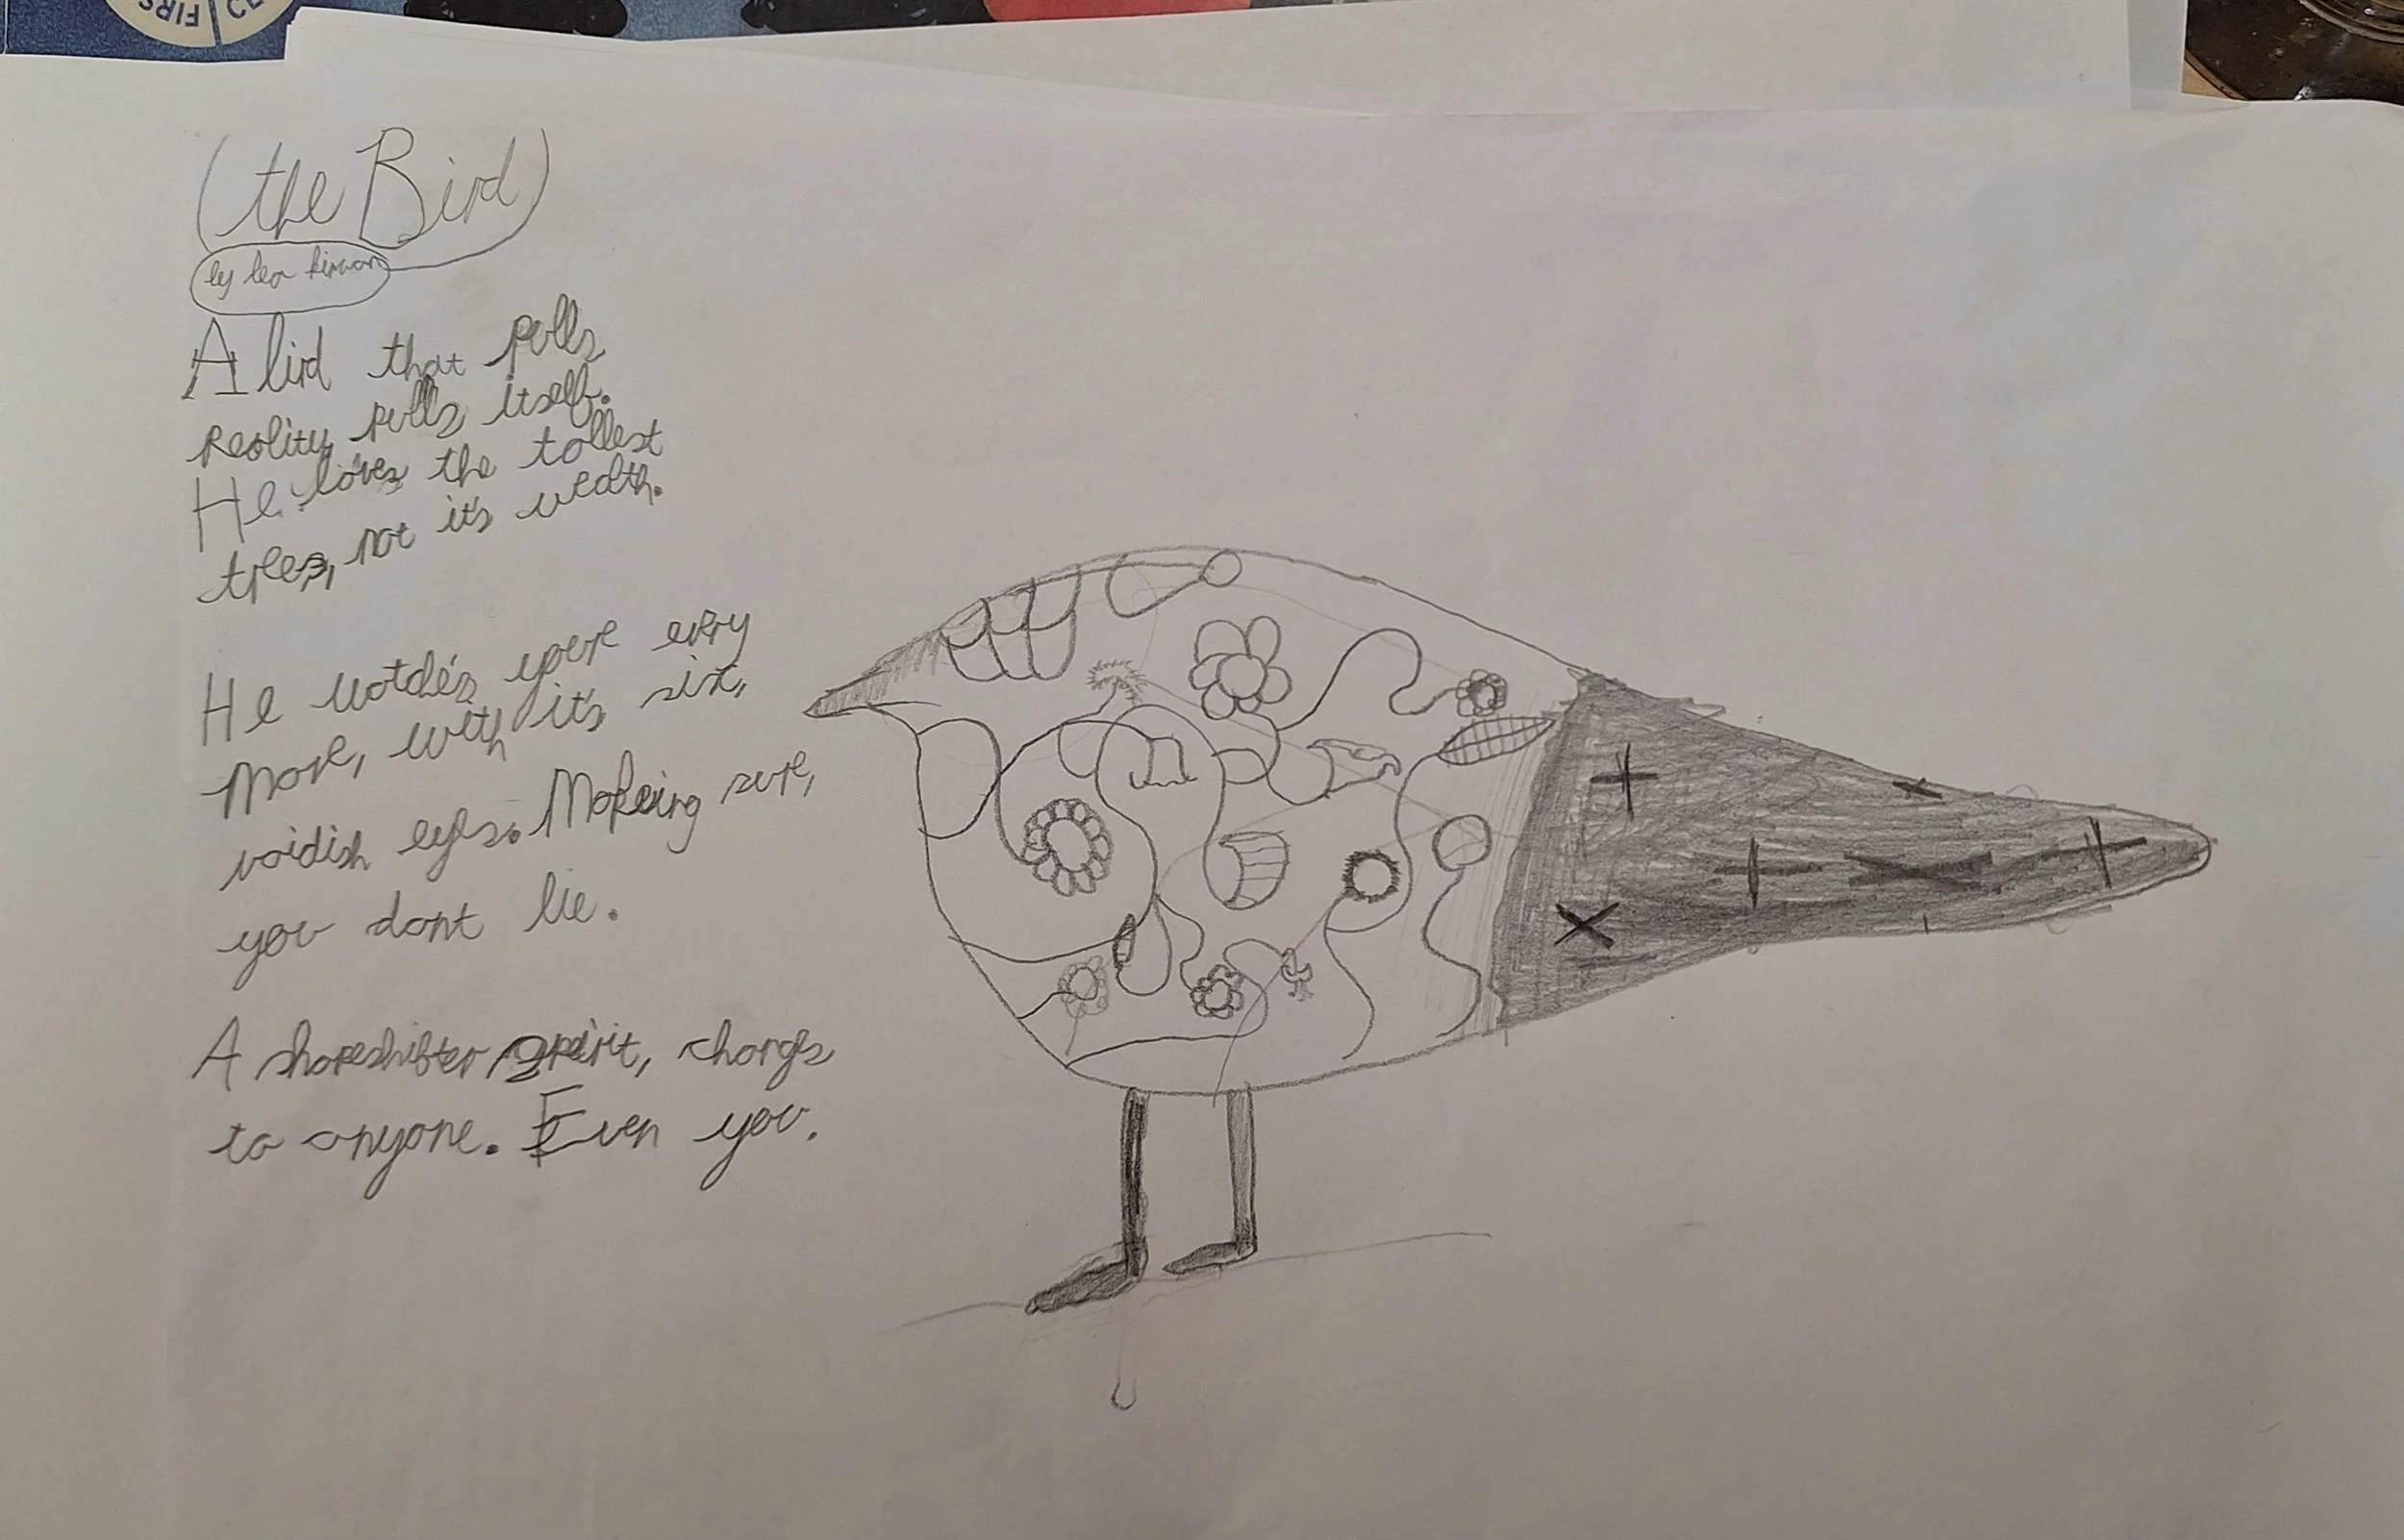 FIRS
CL
(the Bird)
by leo kirwan
A bird that pulls
Reality, pulls itself.
He loves the tallest
trees, not it's width.
He watche's your every
Move, with it's six,
voidish eyes. Makeing sure,
you dont lie.
A shapeshifter spirit, changs
to anyone. Even you.